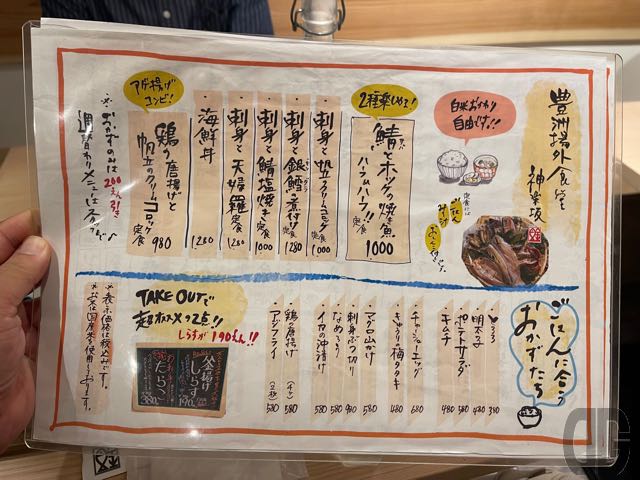 豊洲場外食堂
神楽坂
白米おかわり
自由です!!
2種楽しめる!
鯖とホッケの焼魚
ハーフ&ハーフ!!
定食
1000
・刺身と帆立クリームコロッケ 定食 1000
・刺身と銀鱈煮付け 定食 1280
・刺身と鯖塩焼き 定食 1000
・刺身と天婦羅 定食 1280
・海鮮丼 1280
アゲ揚げ
コンビ!
鶏の唐揚げと
帆立のクリームコロッケ
定食
980
※おかずのみは200えん引き
ごはんに合う
おかずたち
とろろ 380
明太子 480
ポテトサラダ 580
キムチ 480
チャーシューエッグ 680
きゅうり梅タタキ 480
マグロ山かけ 580
刺身ぶつ切り 980
なめろう 580
イカの沖漬け 580
鶏の唐揚げ 580
アジフライ (2枚) 580
TAKE OUTで
超オススメの2点!!
しらすが190えん!!
釜揚げ
しらす
190
たらこ
380
※表示価格は税込みです。
※お米は国産米を使用しております。